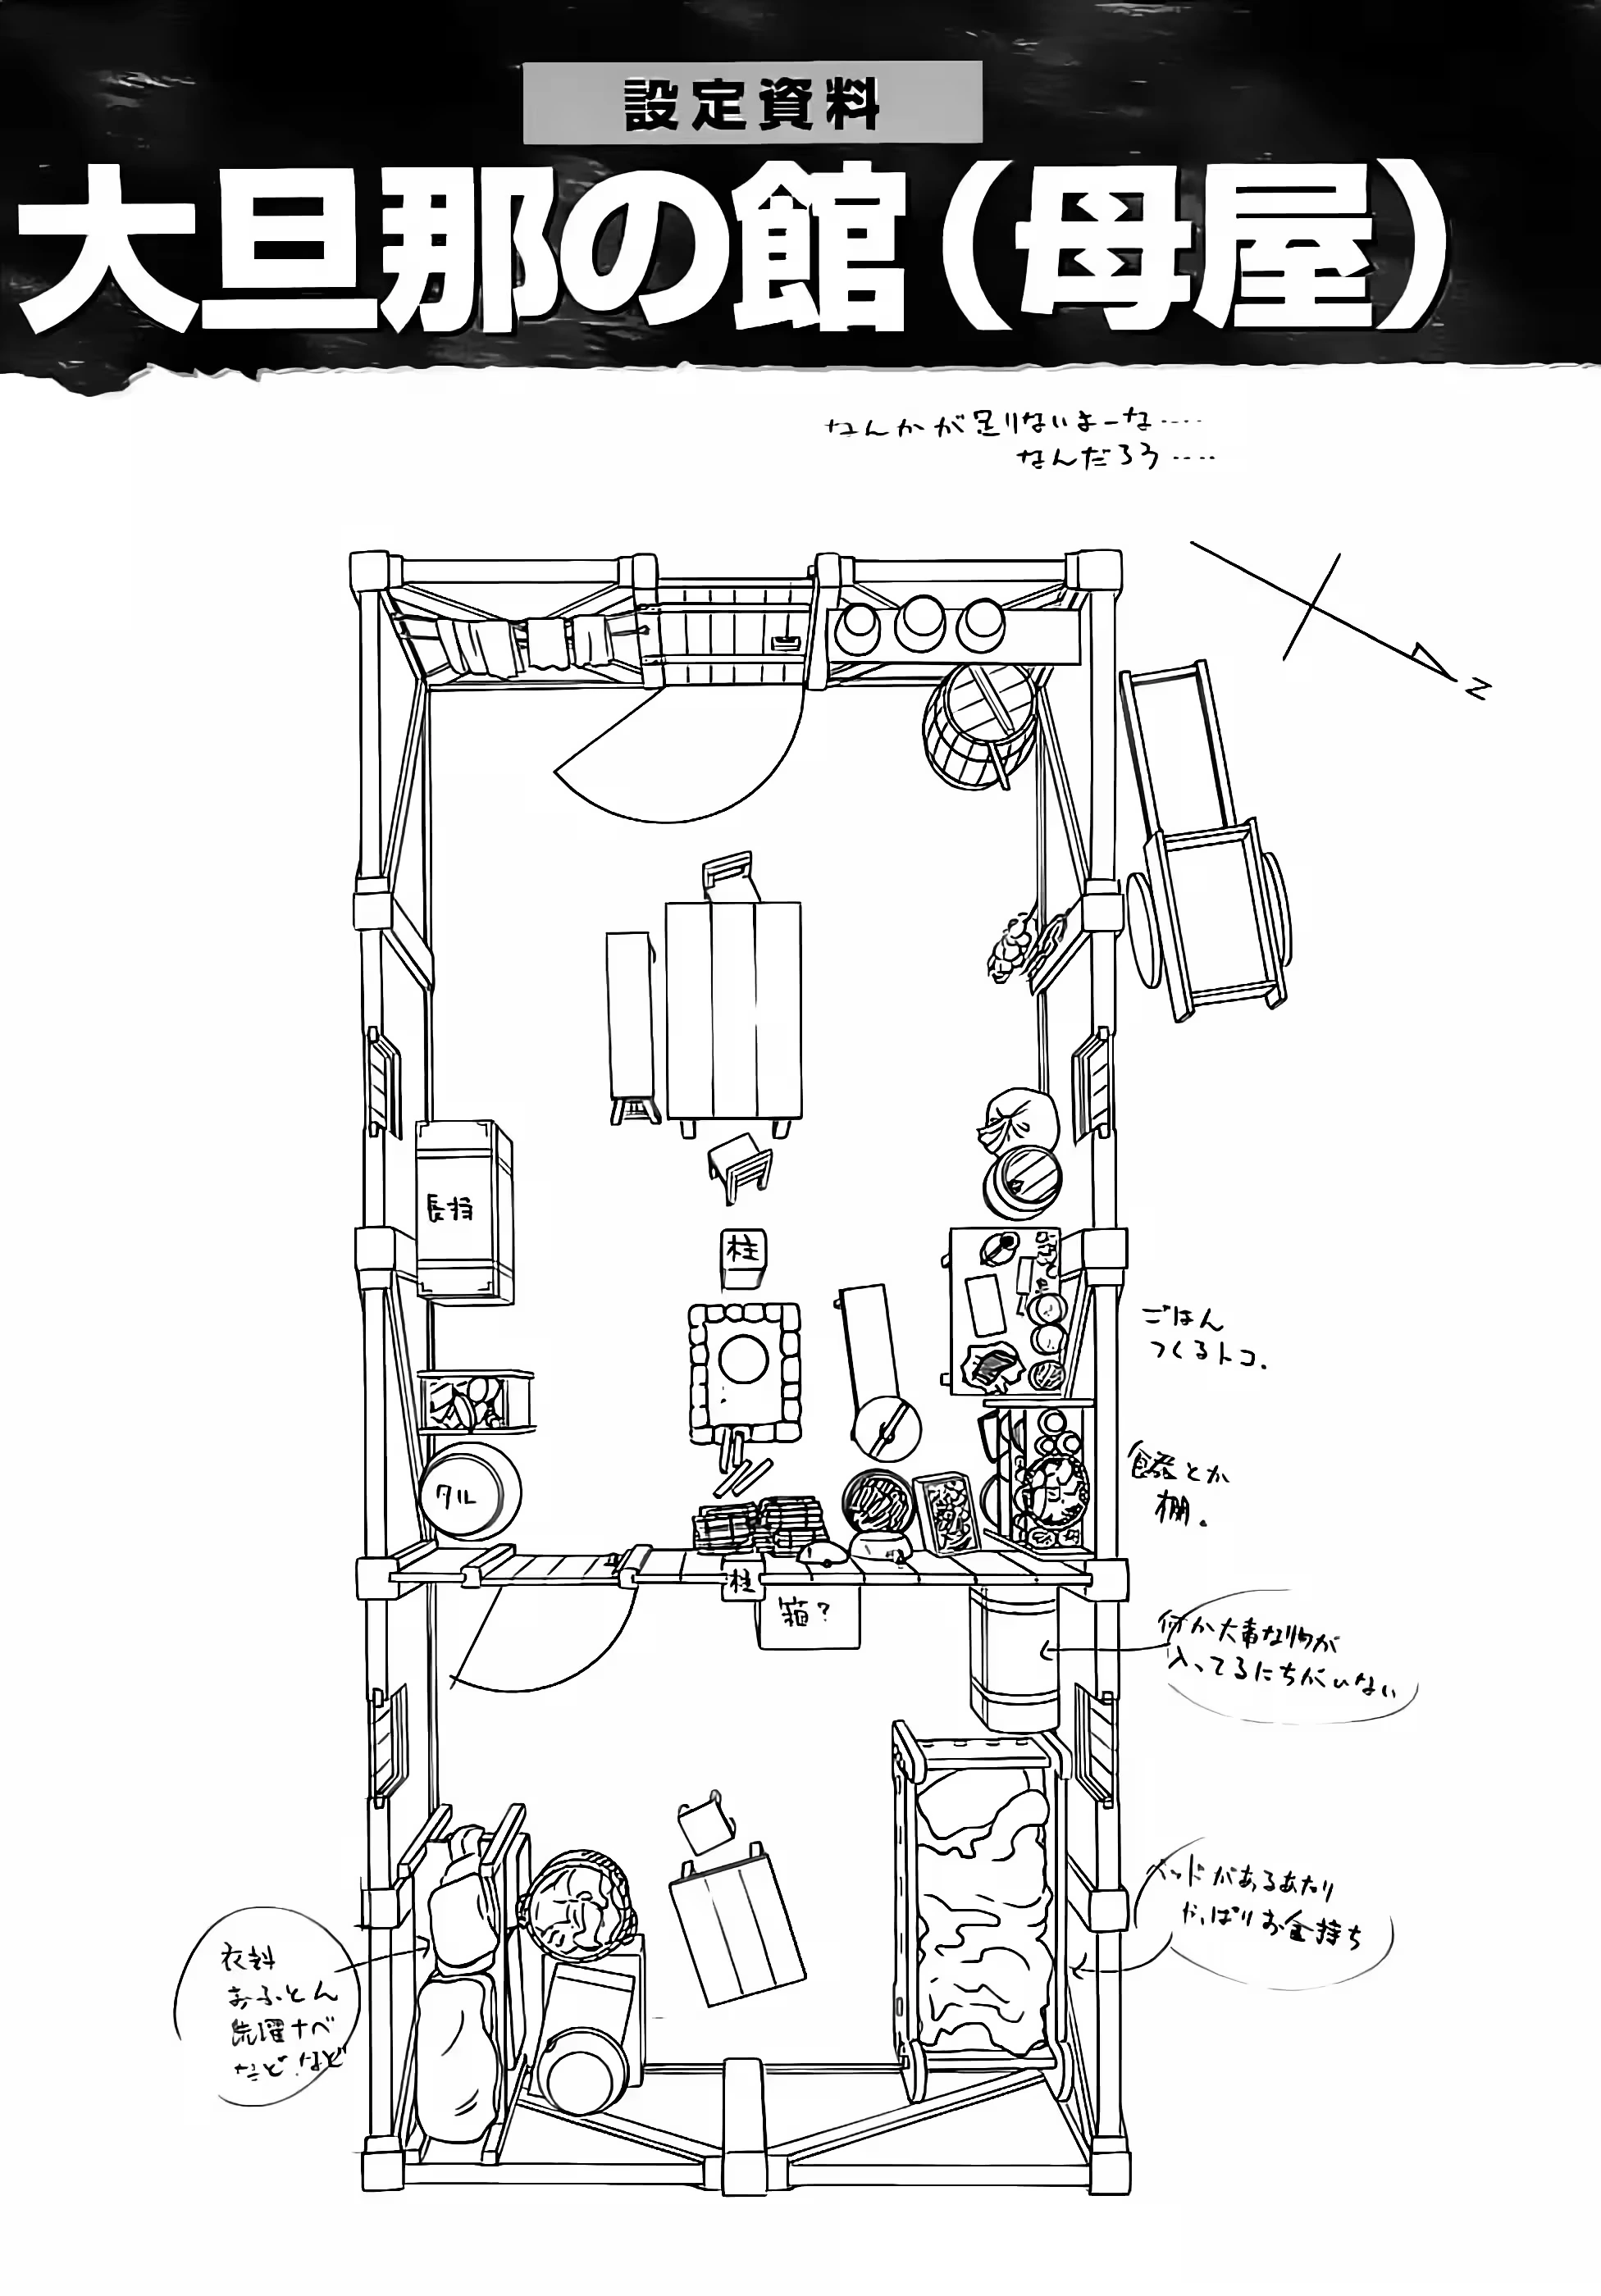 設定資料
大旦那の館(母屋)
なんかが足りないよーな‥‥
なんだろう‥‥
N
長持
柱
ごはん
つくるトコ.
タル
食器とか
棚。
柱
箱?
何か大事な物が
入ってるにちがいない
ベッドがあるあたり
やっぱりお金持ち
衣料
おふとん
洗濯ナベ
などなど